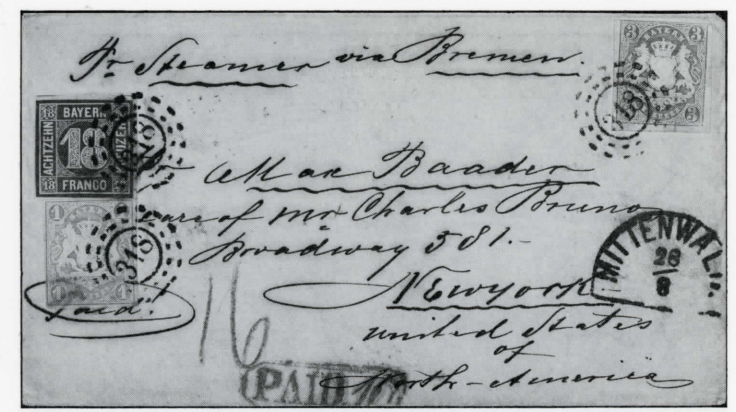 Pr Steamer via Bremen.
3 BAYERN 3
3
318
18 BAYERN
ACHTZEHN 18 KREUZER
18 FRANCO
318
Mr Max Baader
care of Mr Charles Bruno
Broadway 581.-
1 1
318
1 1
Paid!
MITTENWALD.
26
8
Newyork.
united States
of
North-America
16
PAID